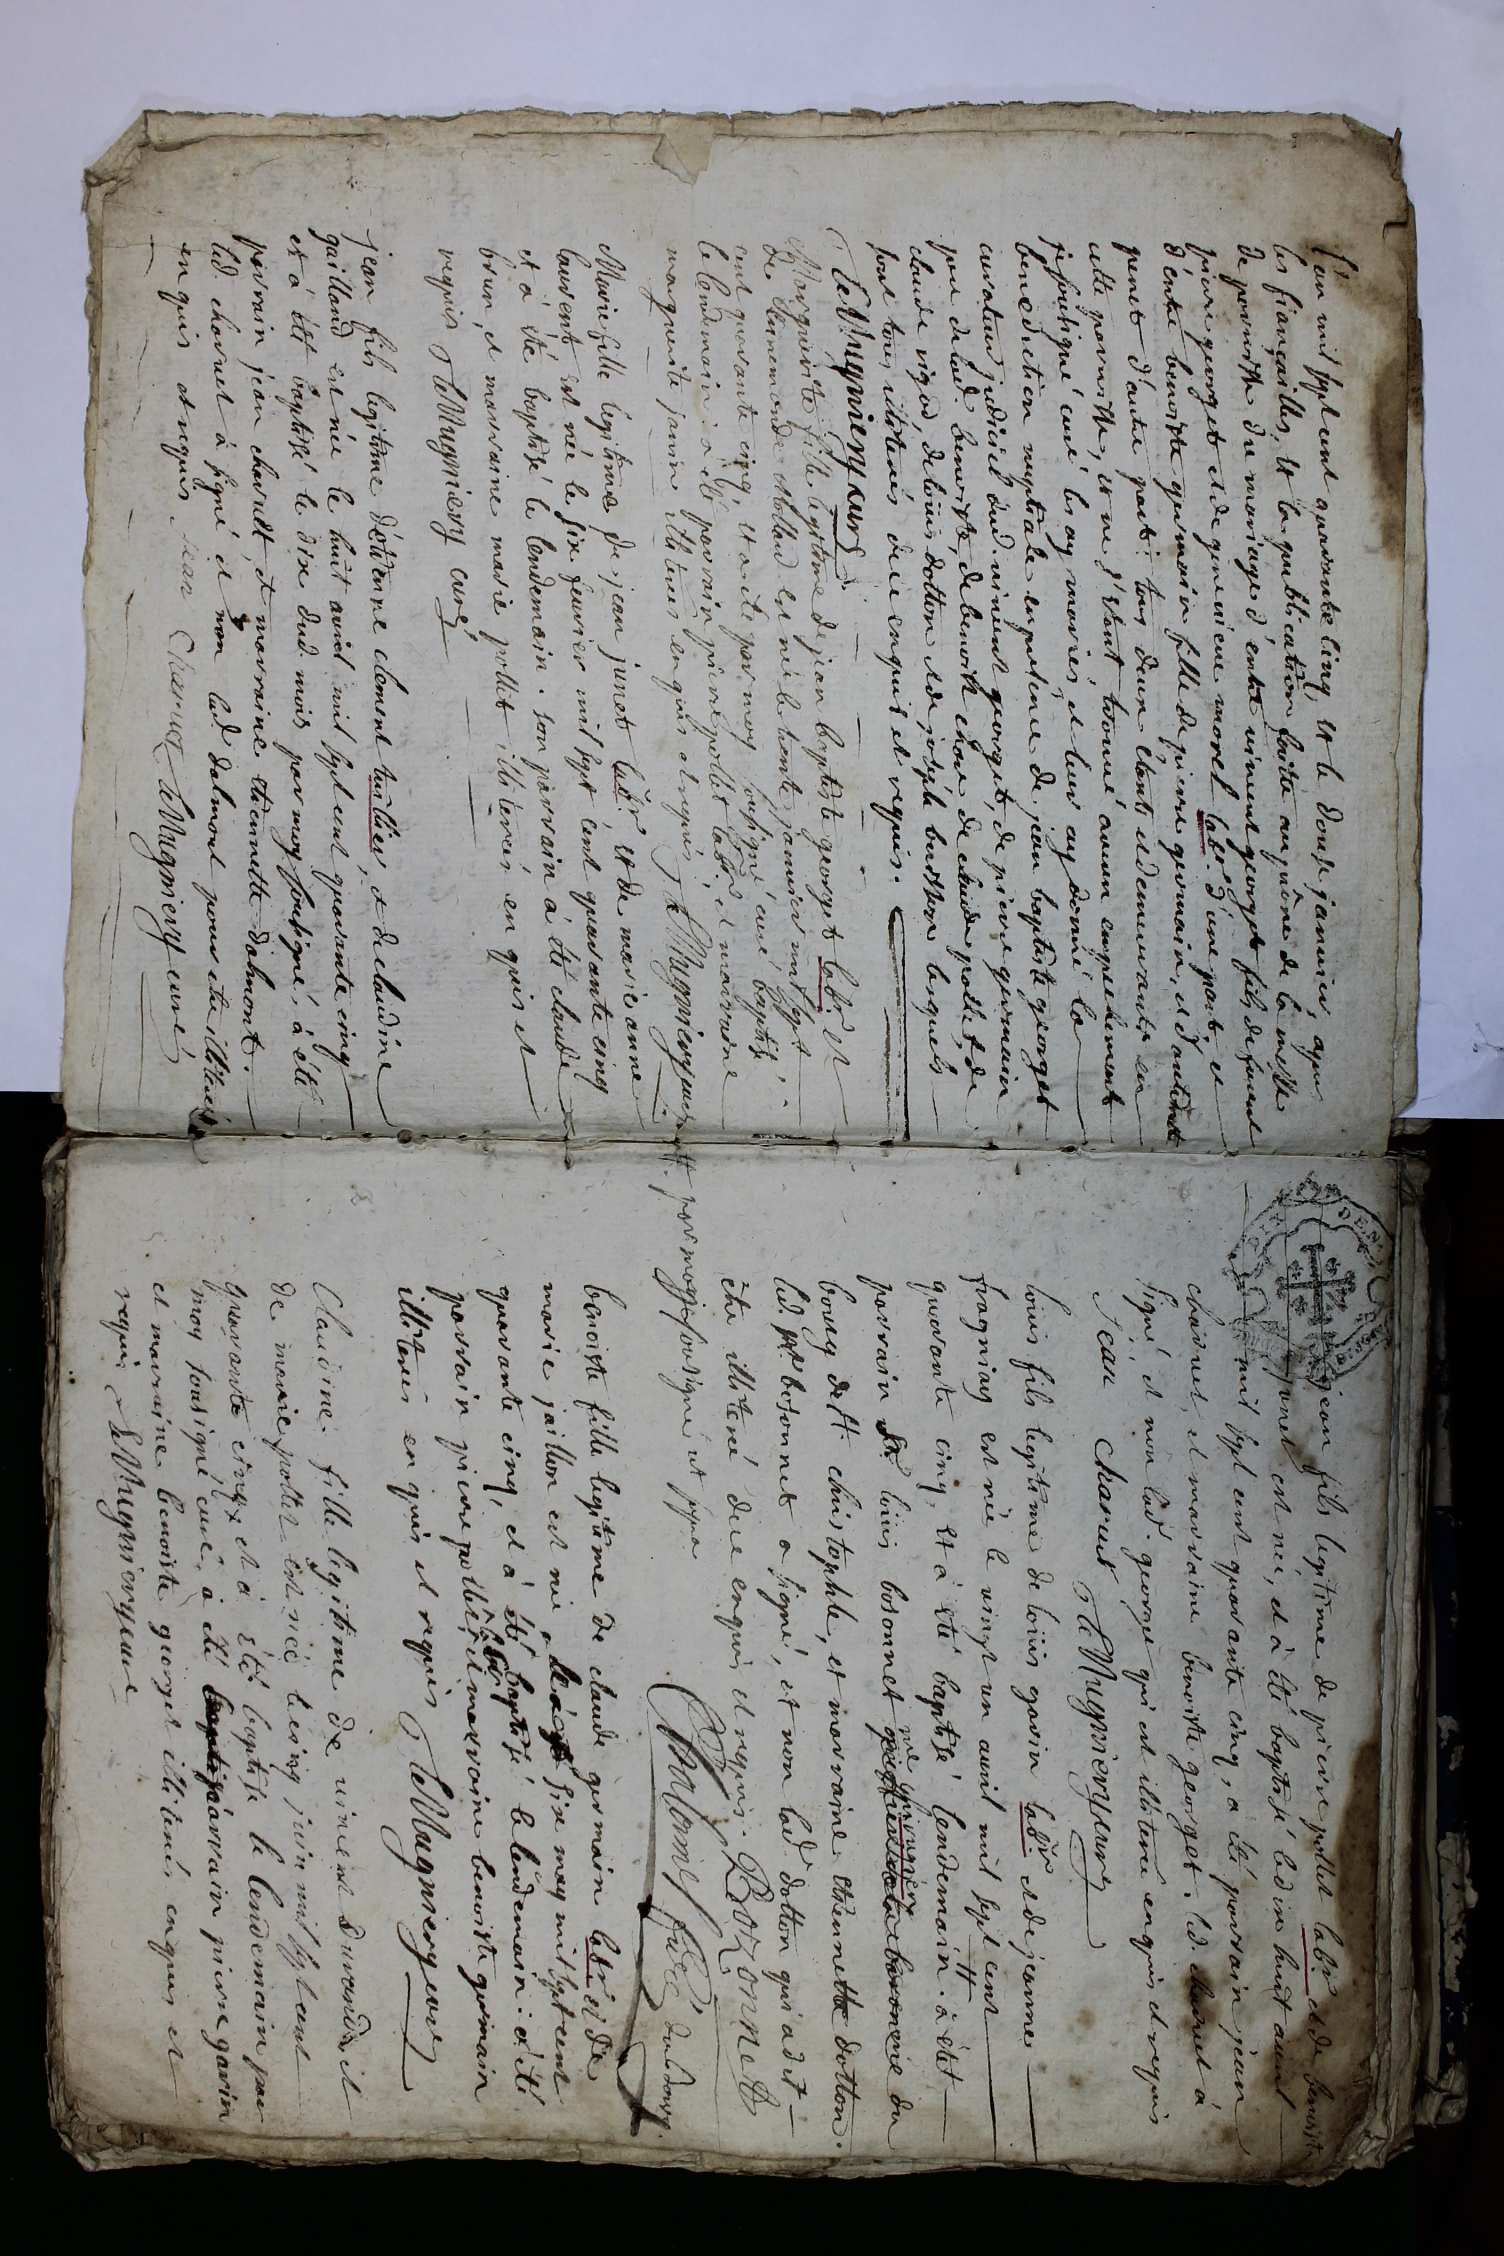 L'an mil sept cent quarante cinq et le douze janvier, apres
les fiançailles, et la publication faitte au prône de la messe
de paroisse du mariage d'entre vincent georget fils de fuent
pierre georget et de genevieve morel labr. d'une part; et
d'entre benoiste germain fille de pierre germain, et d'antoinette
genet d'autre part: tous deux étants et demeurants en
cette paroisse, et ne s'étant trouvé aucun empechement
je soussigné curé les ay mariés et leur ay donné la
benediction nuptiale en présence de jean baptiste georget
curateur judiciel dud. vincent georget, de pierre germain
pere de lad. benoiste, de benoist chare de claude pollet de
claude rigod, de loüis dotton et de joseph buisson lesquels
sont tous illiterés de ce enquis et requis.
Le Mugniery curé
Marguerite fille legitime de jean baptiste georget labr. et
de clemence est née le trente janvier mil sept
cent quarante cinq, et a eté par moy soussigné curé baptisé
le lendemain a été parrain pierre pollet labr. et marraine
marguerite janin illiterés enquis et requis Le Mugniery curé
Marie fille légitime de jean junet labr. et de marie anne
laurent est née le six feuvrier mil sept cent quarante cinq
et a été baptisé le lendemain. son parrain a été claude
brun, et marraine marie pollet illiterés enquis et
requis Le Mugniery curé
jean fils legitime d'étienne clement tuillier, et de claudine
gailland est né le huit avril mil sept cent quarante cinq
et a été baptisé le dix dud. mois par moy soussigné, a été
parrain jean charvet, et marraine étiennette dalmont.
led. charvet a signé et non lad. dalmont pour etre illiteré
enquis et requis jean charvet Le Mugniery curé
jean fils legitime de pierre pollet labr. et de benoiste
genet est né, et a été baptisé le dix huit avril
mil sept cent quarante cinq, a été parrain jean
charvet, et marraine benoiste georget. led. charvet a
signé, et non lad. georget qui est illiteré enquis et requis
jean charvet Le Mugniery curé
loüis fils legitime de loüis gavin labr. et de jeanne
fragnion est né le vingt un avril mil sept cent
quarante cinq, et a été baptisé lendemain. a étét
parrain Sr. loüis bosonnet me chirurgien du
bourg de St. christophle, et marraine étiennette dotton.
led. Sr. bosonnet a signé, et non lad. dotton qui a dit
etre illiteré de ce enquis et requis. Bozonnet
par moy soussigné ut supra curé du bourg.
benoiste fille legitime de claude germain labr. et de
marie jaillon est née le six may mil sept cent
quarante cinq, et a été baptisé le lendemain. a été
parrain pierre pollet labr. et marraine benoiste germain
illiterés enquis et requis Le Mugniery curé
Claudine fille legitime de vincent durand et
de marie pollet est née le cinq juin mil sept cent
quarante cinq et a été baptisé le lendemain par
moy soussigné curé, a été parrain pierre gavin
et marraine benoiste georget illiterés enquis et
requis Le Mugniery curé